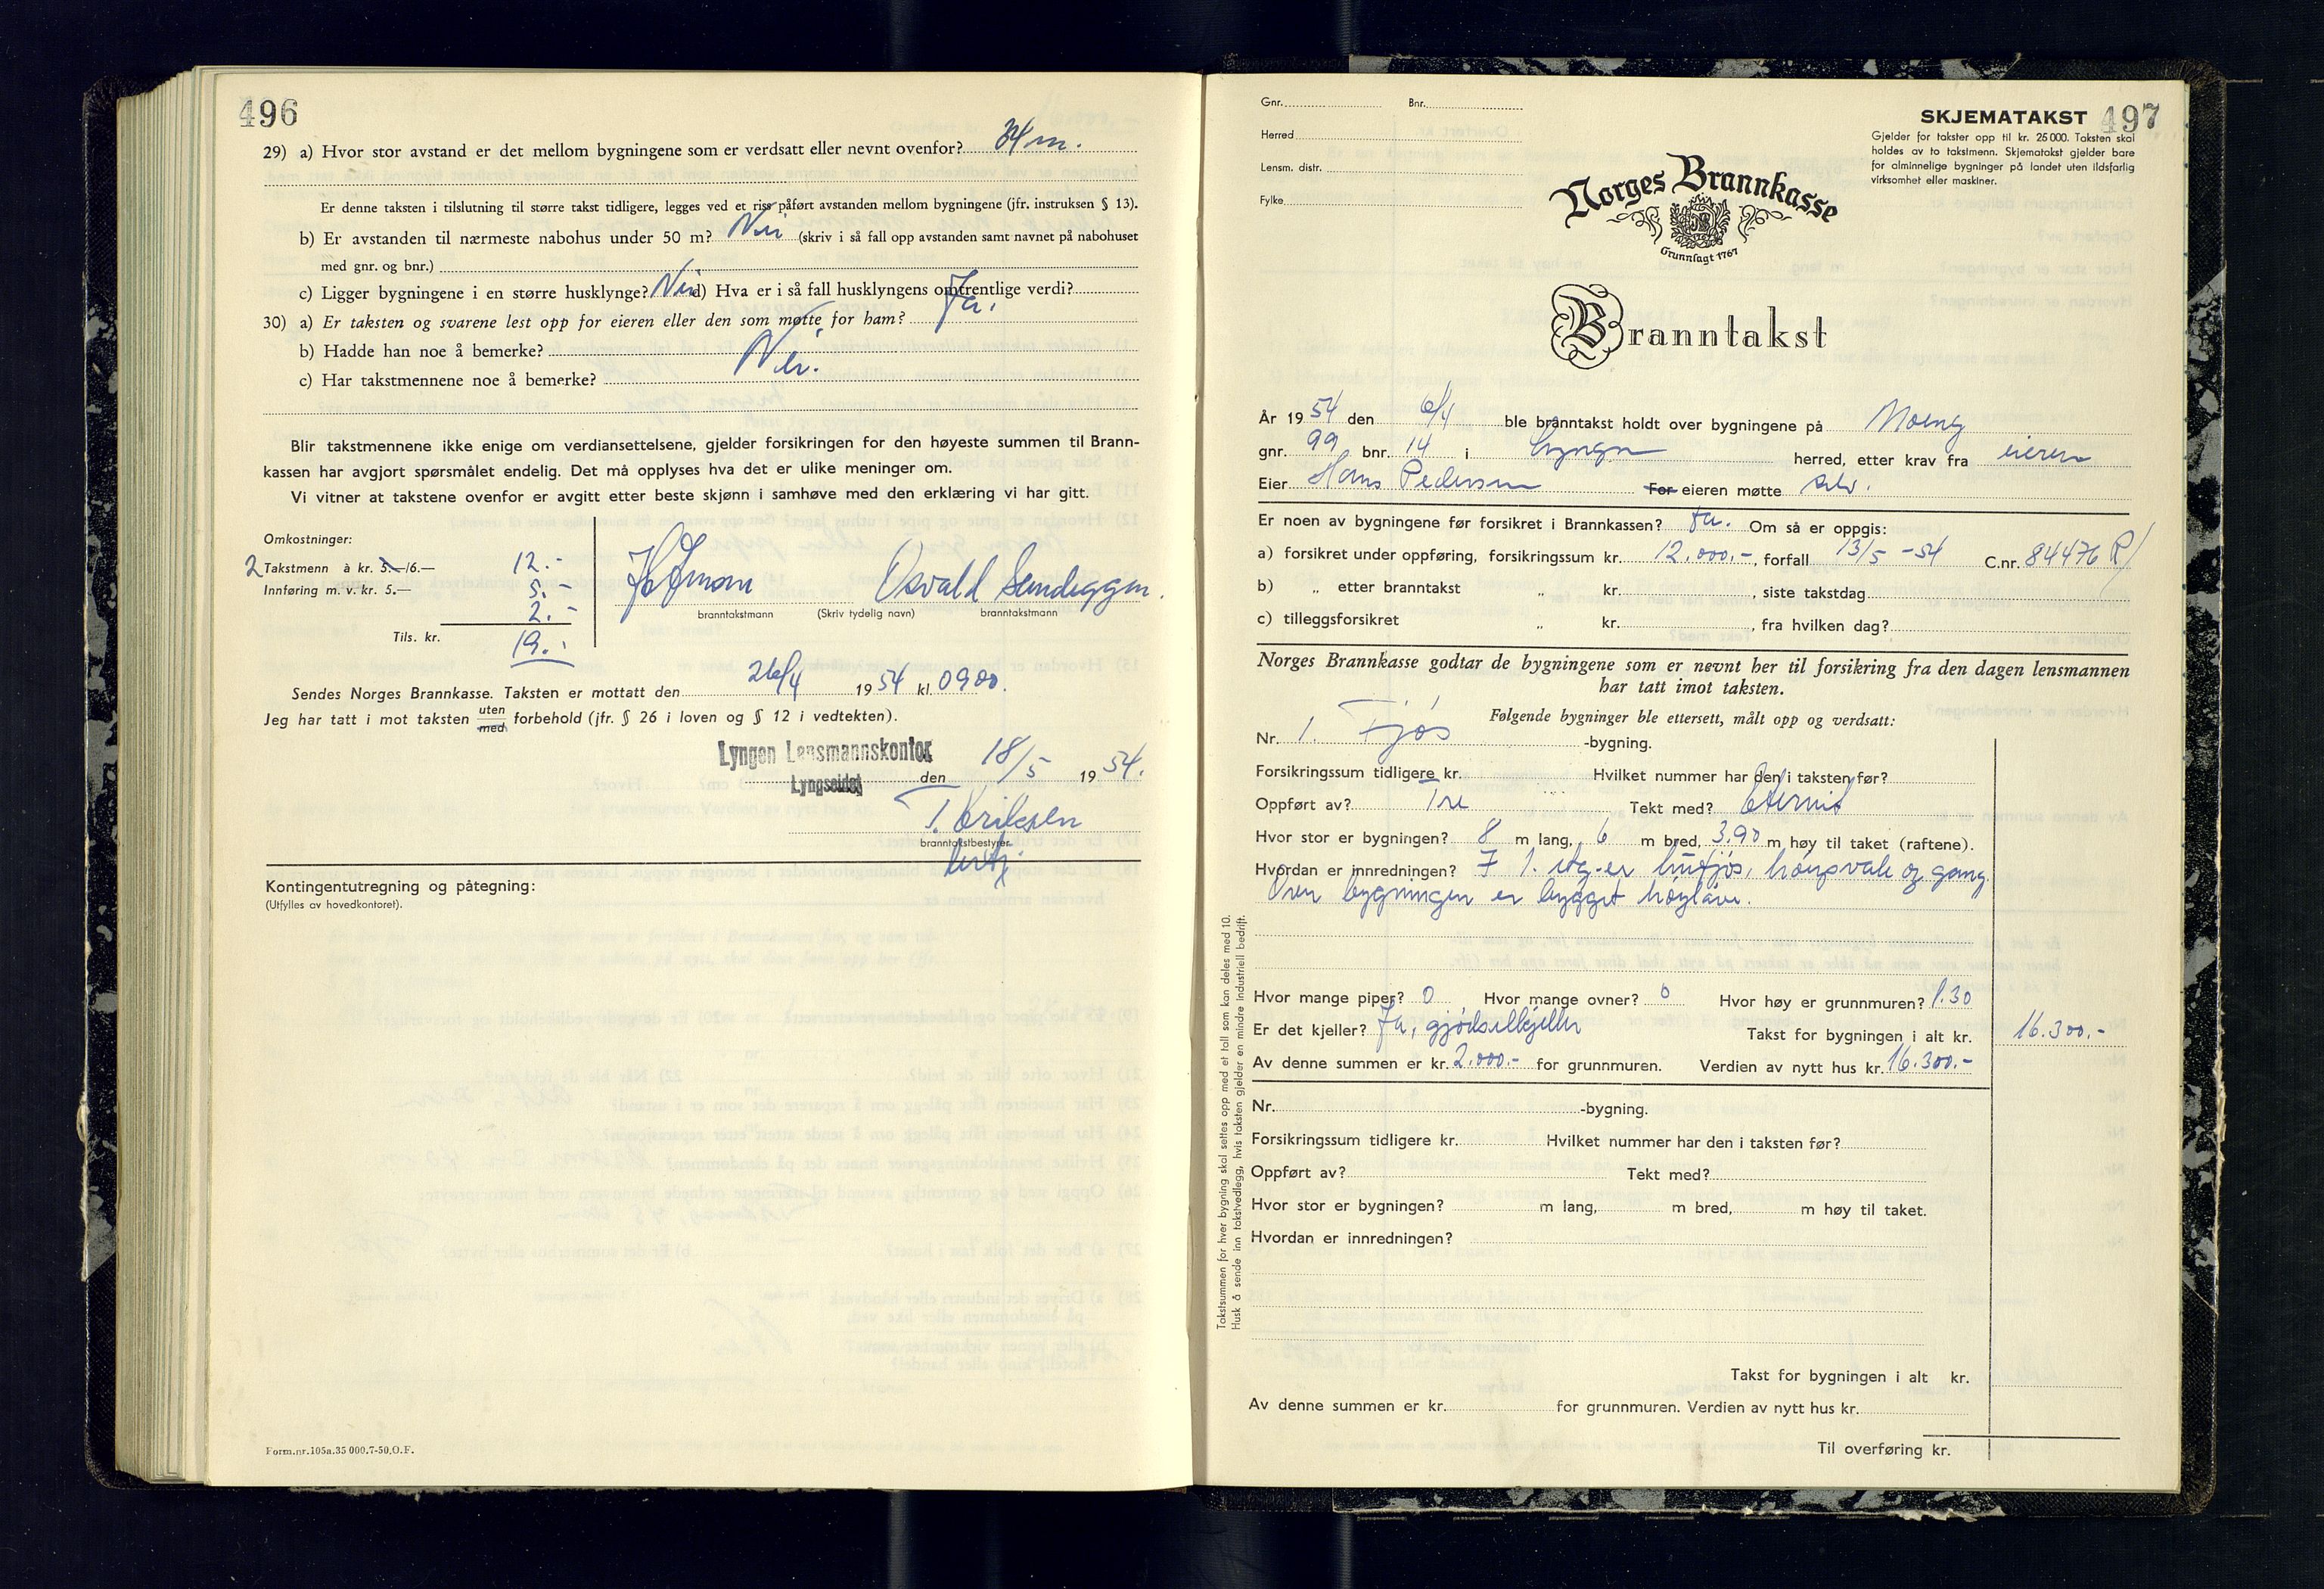 496
29) a) Hvor stor avstand er det mellom bygningene som er verdsatt eller nevnt ovenfor? 34 m.
Er denne taksten i tilslutning til større takst tidligere, legges ved et riss påført avstanden mellom bygningene (jfr. instruksen § 13).
b) Er avstanden til nærmeste nabohus under 50 m? Nei (skriv i så fall opp avstanden samt navnet på nabohuset
med gnr. og bnr.)
c) Ligger bygningene i en større husklynge? Nei d) Hva er i så fall husklyngens omtrentlige verdi?
30) a) Er taksten og svarene lest opp for eieren eller den som møtte for ham? Ja.
b) Hadde han noe å bemerke?
c) Har takstmennene noe å bemerke? Nei.
Blir takstmennene ikke enige om verdiansettelsene, gjelder forsikringen for den høyeste summen til Brann-
kassen har avgjort spørsmålet endelig. Det må opplyses hva det er ulike meninger om.
Vi vitner at takstene ovenfor er avgitt etter beste skjønn i samhøve med den erklæring vi har gitt.
Omkostninger:
2 Takstmenn à kr. 5.—/6.— 12.-
Innføring m. v. kr. 5.— 5.-
2.-
Tils. kr. 19.-
Osvald Sendeggen.
branntakstmann (Skriv tydelig navn) branntakstmann
Sendes Norges Brannkasse. Taksten er mottatt den 26/4 1954 kl. 0900.
Jeg har tatt i mot taksten uten med forbehold (jfr. § 26 i loven og § 12 i vedtekten).
Lyngen Lensmannskontor den 18/5 1954.
Lyngseidet
T. Eriksen
branntakstbestyrer
betj.
Kontingentutregning og påtegning:
(Utfylles av hovedkontoret).
Form.nr.105a.35 000.7-50.O.F.
497
Gnr. Bnr.
Herred
Lensm. distr.
Fylke
SKJEMATAKST
Gjelder for takster opp til kr. 25 000. Taksten skal
holdes av to takstmenn. Skjematakst gjelder bare
for alminnelige bygninger på landet uten ildsfarlig
virksomhet eller maskiner.
Norges Brannkasse
Grunnlagt 1767
Branntakst
År 1954 den 6/4 ble branntakst holdt over bygningene på Moeng
gnr. 99 bnr. 14 i Lyngen herred, etter krav fra eieren
Eier Hans Pedersen For eieren møtte selv.
Er noen av bygningene før forsikret i Brannkassen? Ja. Om så er oppgis:
a) forsikret under oppføring, forsikringssum kr. 12.000,-, forfall 13/5 -54 C.nr. 84476 R/
b) „ etter branntakst „ kr. , siste takstdag
c) tilleggsforsikret „ kr. , fra hvilken dag?
Norges Brannkasse godtar de bygningene som er nevnt her til forsikring fra den dagen lensmannen
har tatt imot taksten.
Følgende bygninger ble ettersett, målt opp og verdsatt:
Nr. 1. Fjøs -bygning.
Forsikringssum tidligere kr. Hvilket nummer har den i taksten før?
Oppført av? Tre Tekt med? Eternit
Hvor stor er bygningen? 8 m lang, 6 m bred, 3,90 m høy til taket (raftene).
Hvordan er innredningen? I 1. etg. er og gang.
Over bygningen er bygget høylåve.
Hvor mange piper? 0 Hvor mange ovner? 0 Hvor høy er grunnmuren? 1.30
Er det kjeller? Ja, gjødselkjeller Takst for bygningen i alt kr. 16.300.-
Av denne summen er kr. 2.000.- for grunnmuren. Verdien av nytt hus kr. 16.300.-
Nr. -bygning.
Forsikringssum tidligere kr. Hvilket nummer har den i taksten før?
Oppført av? Tekt med?
Hvor stor er bygningen? m lang, m bred, m høy til taket.
Hvordan er innredningen?
Takst for bygningen i alt kr.
Av denne summen er kr. for grunnmuren. Verdien av nytt hus kr.
Til overføring kr.
Takstsummen for hver bygning skal settes opp med et tall som kan deles med 10.
Husk å sende inn takstvedlegg, hvis taksten gjelder en mindre industriell bedrift.